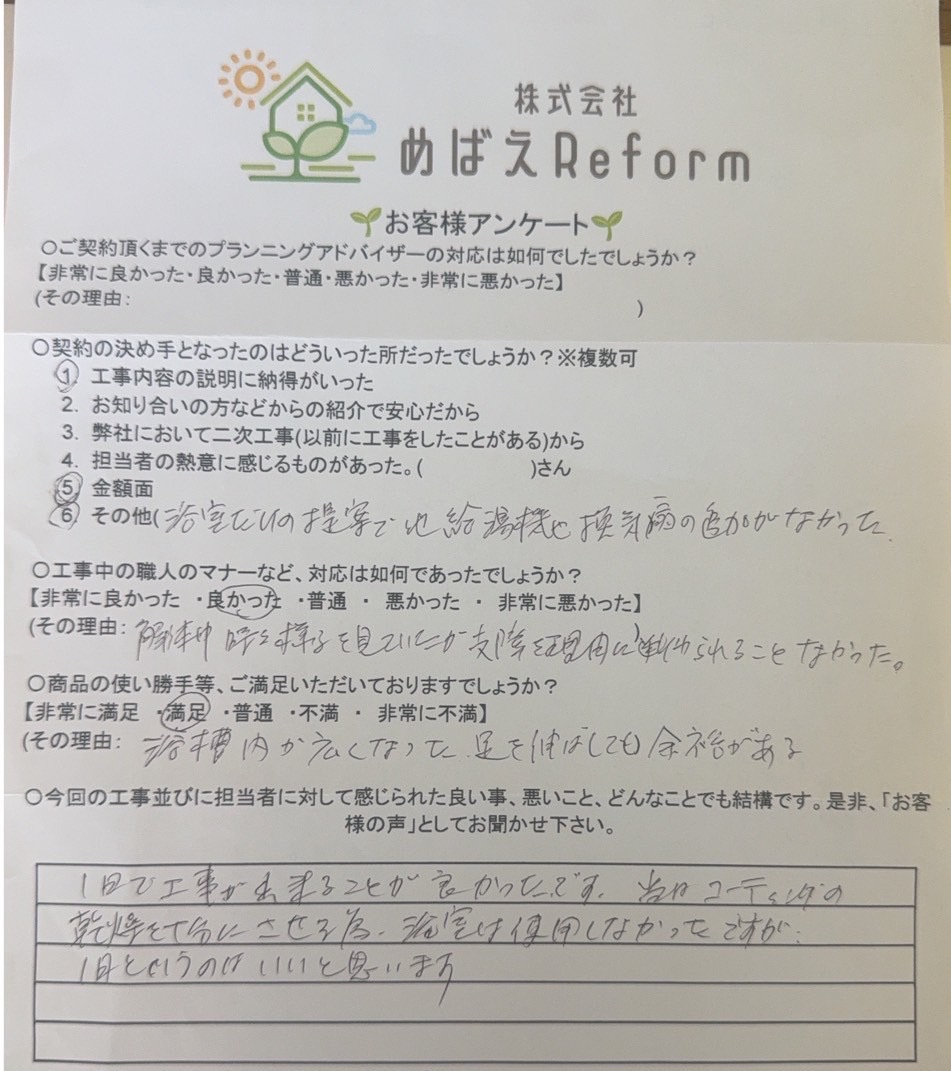 株式会社
めばえReform
お客様アンケート
○ご契約頂くまでのプランニングアドバイザーの対応は如何でしたでしょうか？
【非常に良かった・良かった・普通・悪かった・非常に悪かった】
(その理由:　　　　　)
○契約の決め手となったのはどういった所だったでしょうか？※複数可
1. 工事内容の説明に納得がいった
2. お知り合いの方などからの紹介で安心だから
3. 弊社において二次工事(以前に工事をしたことがある)から
4. 担当者の熱意に感じるものがあった。(　　　　　)さん
5. 金額面
6. その他(浴室だけの提案で他給湯機や換気扇の追加がなかった.
○工事中の職人のマナーなど、対応は如何であったでしょうか？
【非常に良かった ・良かった ・普通 ・ 悪かった ・ 非常に悪かった】
(その理由: 解体中時々様子を見ていたが支障を理由に られることなかった。
○商品の使い勝手等、ご満足いただいておりますでしょうか？
【非常に満足 ・満足 ・普通 ・不満 ・ 非常に不満】
(その理由: 浴槽内が広くなった 足を伸ばしても余裕がある
○今回の工事並びに担当者に対して感じられた良い事、悪いこと、どんなことでも結構です。是非、「お客
様の声」としてお聞かせ下さい。
1日で工事が出来ることが良かったです. 当日コーティングの
乾燥を十分にさせる為、浴室は使用しなかったですが、
1日というのはいいと思います